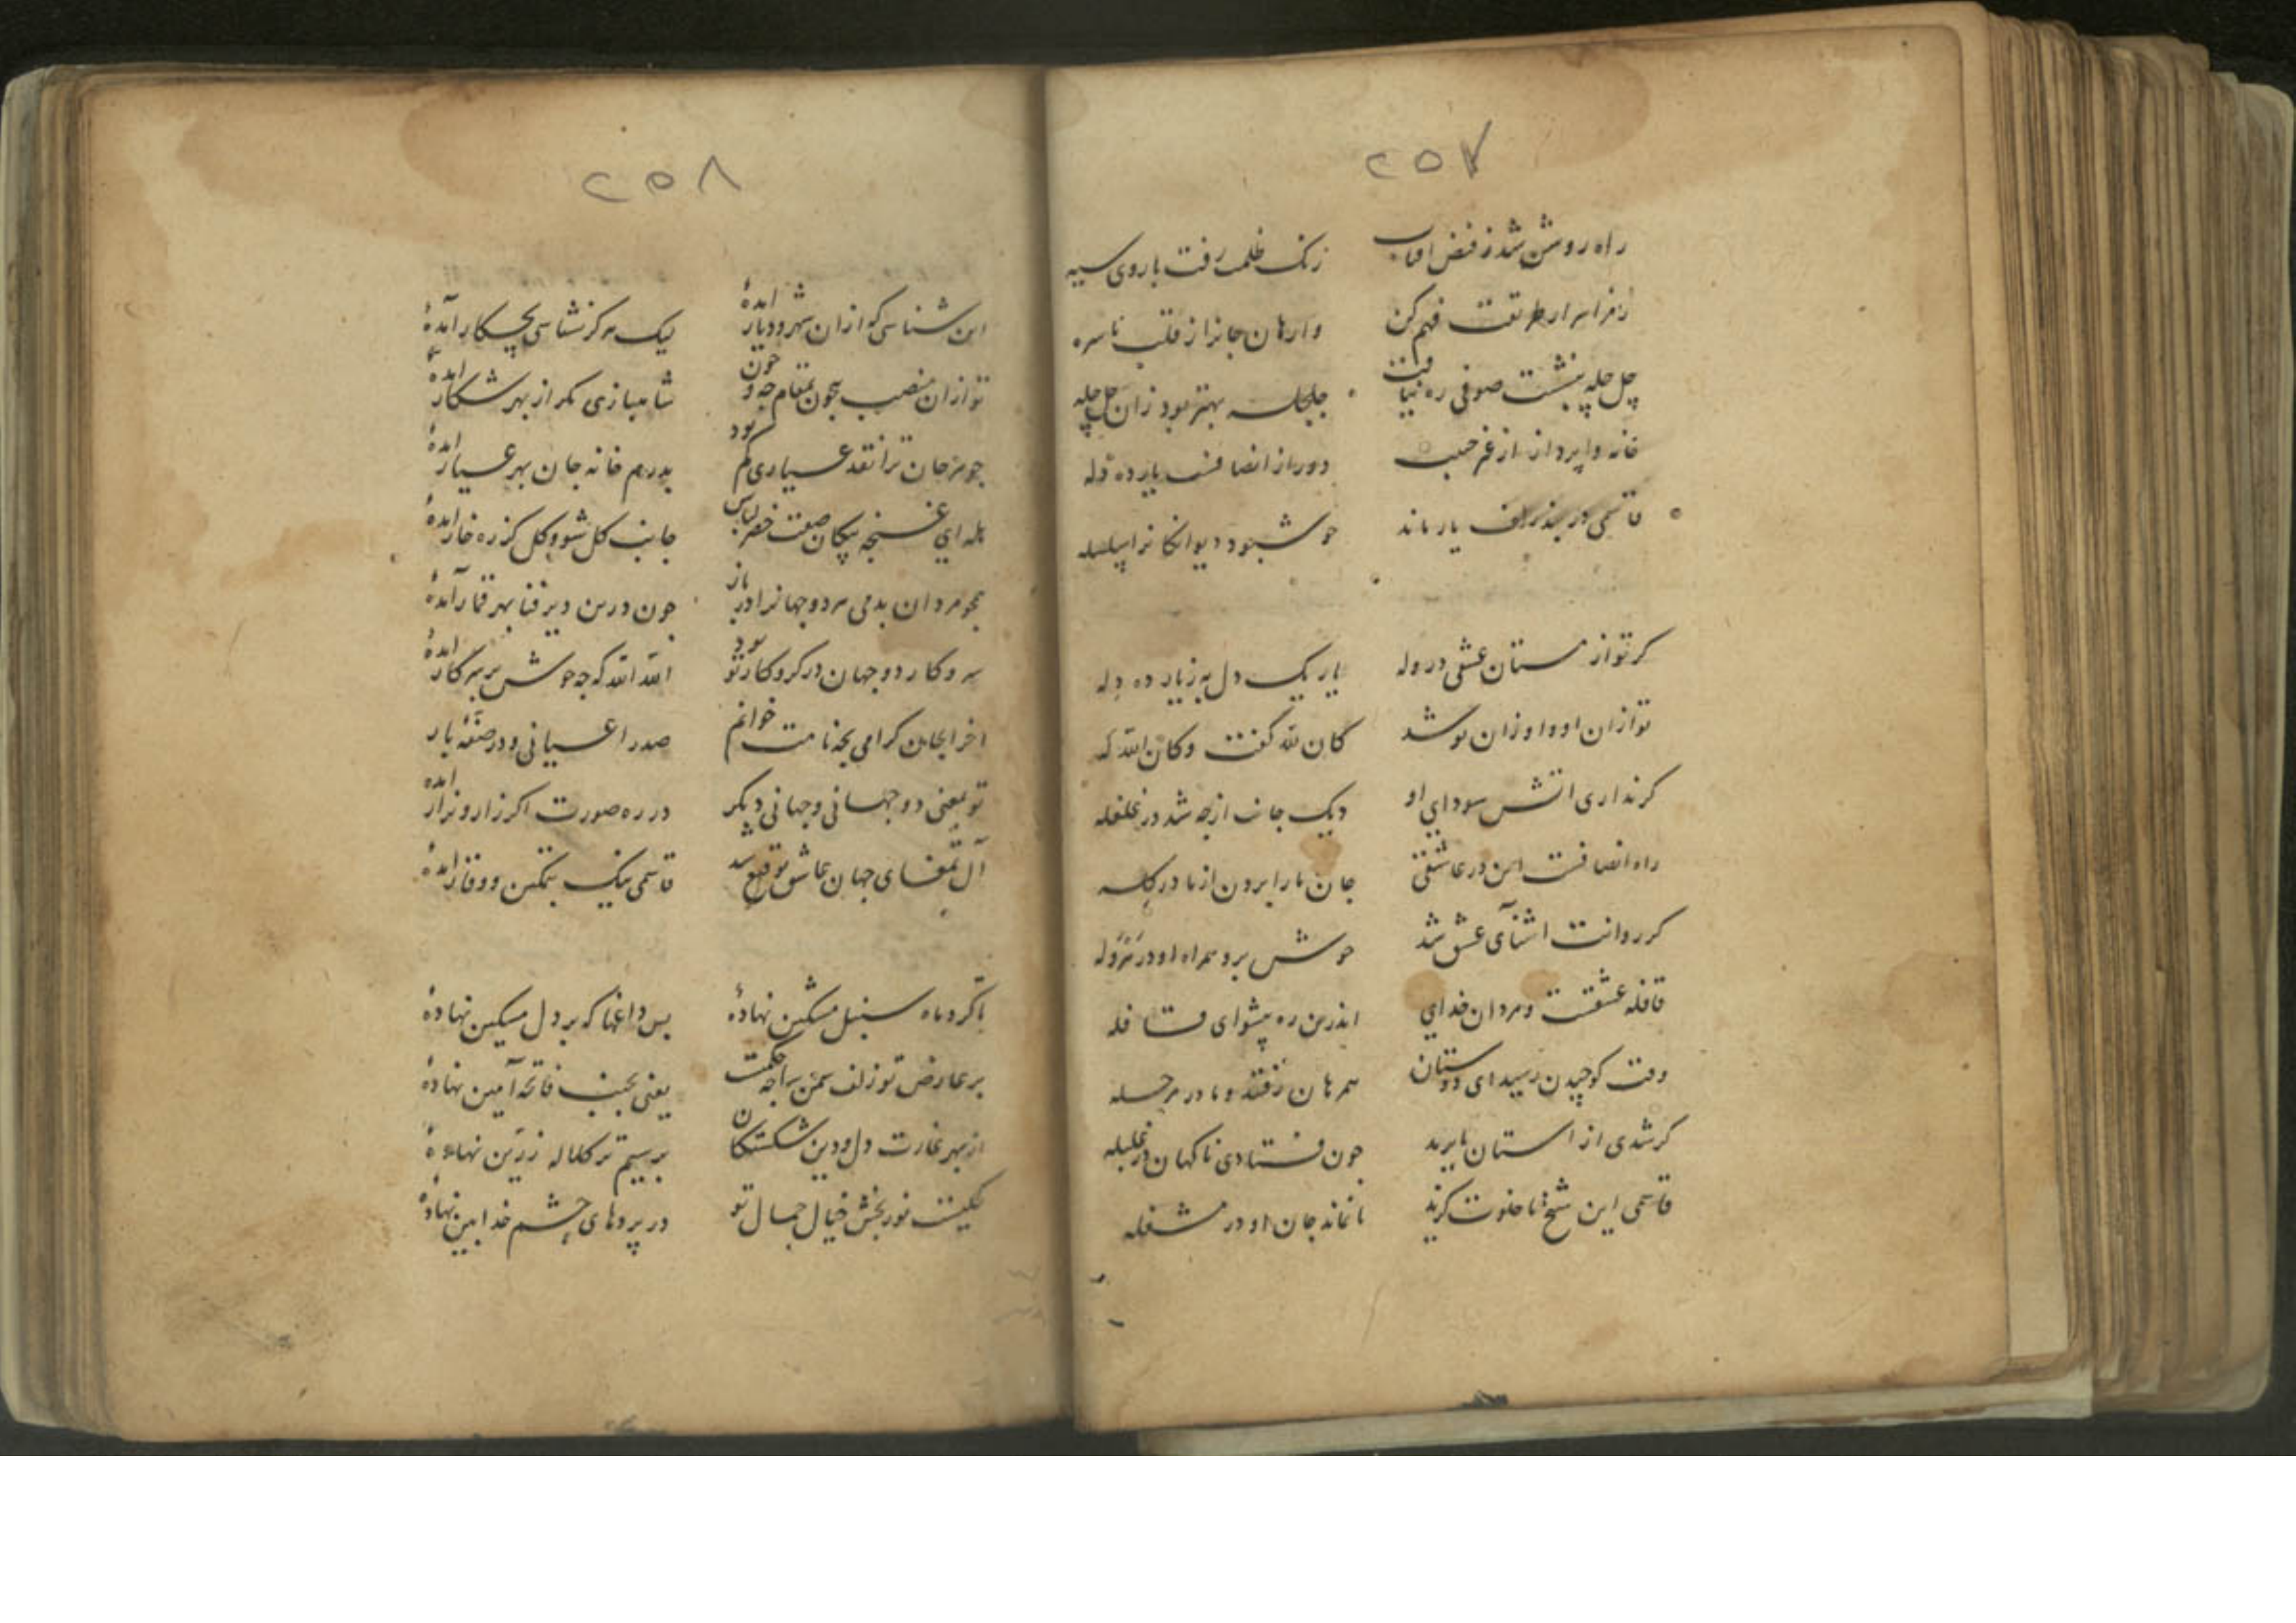 ۲۵۷
راه روشن شد ز فیض افتاب زنک ظلمت رفت با روی سیه
رمز اسرار طریقت فهم کن وارهان جانرا ز قلب ناسره
چل چله بنشست صوفی ره نیافت جلجله بهتر بود زان چل چله
خانه واپرداز از غیر حبیب دور از انصافست یار ده دله
قاسمی در بند زلف یار ماند خوش بود دیوانکانرا سلسله
کر تو از مستان عشقی در وله یار یک دل به ز یار ده دله
تو ازان او و او زان تو شد کان لله کفت و کان الله له
کر نداری اتش سودای او دیک جانت ازجه شد در غلغله
راه انصافست این در عاشقی جان ما را برون از ما در کله
کر روانت اشنای عشق شد خوش برو همراه او در هروله
قافله عشقست و مردان خدای اندرین ره پیشوای قافله
وقت کوچیدن رسید ای دوستان همرهان رفتند و ما در مرحله
کر شدی از استان ما برید جون فتادی ناکهان در غلبله
قاسمی این شیخ ما خلوت کزید تا نماند جان او در مشغله
۲۵۸
این شناسی که ازان شهر و دیار امدۀ لیک هرکز نشناسی بچکار آمدۀ
تو ازان منصب بیجون بمقام جه و جون شاهبازی مکر از بهر شکار امدۀ
جوهر جان ترا نقد عیاری کم بود بدرم خانه جان بهر عیار امدۀ
هله ای غنچه پیکان صفت خضر لباس جانب کل شو و کل کز ره خار امدۀ
همجو مردان بدمی هر دو جهانرا در باز جون درین دیر فنا بهر قمار آمدۀ
سر و کار دو جهان در کرو کار تو بود الله الله که جه خوش بر سر کار امدۀ
اخر ایجان کرامی بچه نامت خوانم صدر اعیانی و در صفۀ بار
تو بمعنی دو جهانی و جهانی دیکر در ره صورت اکر زار و نزار امده
آل تمغای جهان عاشق توقیع تو شد قاسمی نیک بتمکین و وقار امدۀ
تا کرد ماه سنبل مشکین نهادۀ بس داغها که بر دل مسکین نهادۀ
بر عارض تو زلف سمن سا جه حکمت یعنی بجیب فاتحه آمین نهادۀ
از بهر غارت دل و دین شکستکان بر سیم تر کلاله زرین نهادۀ
نور بخش خیال جمال تو در پردهای چشم خدا بین نهادۀ